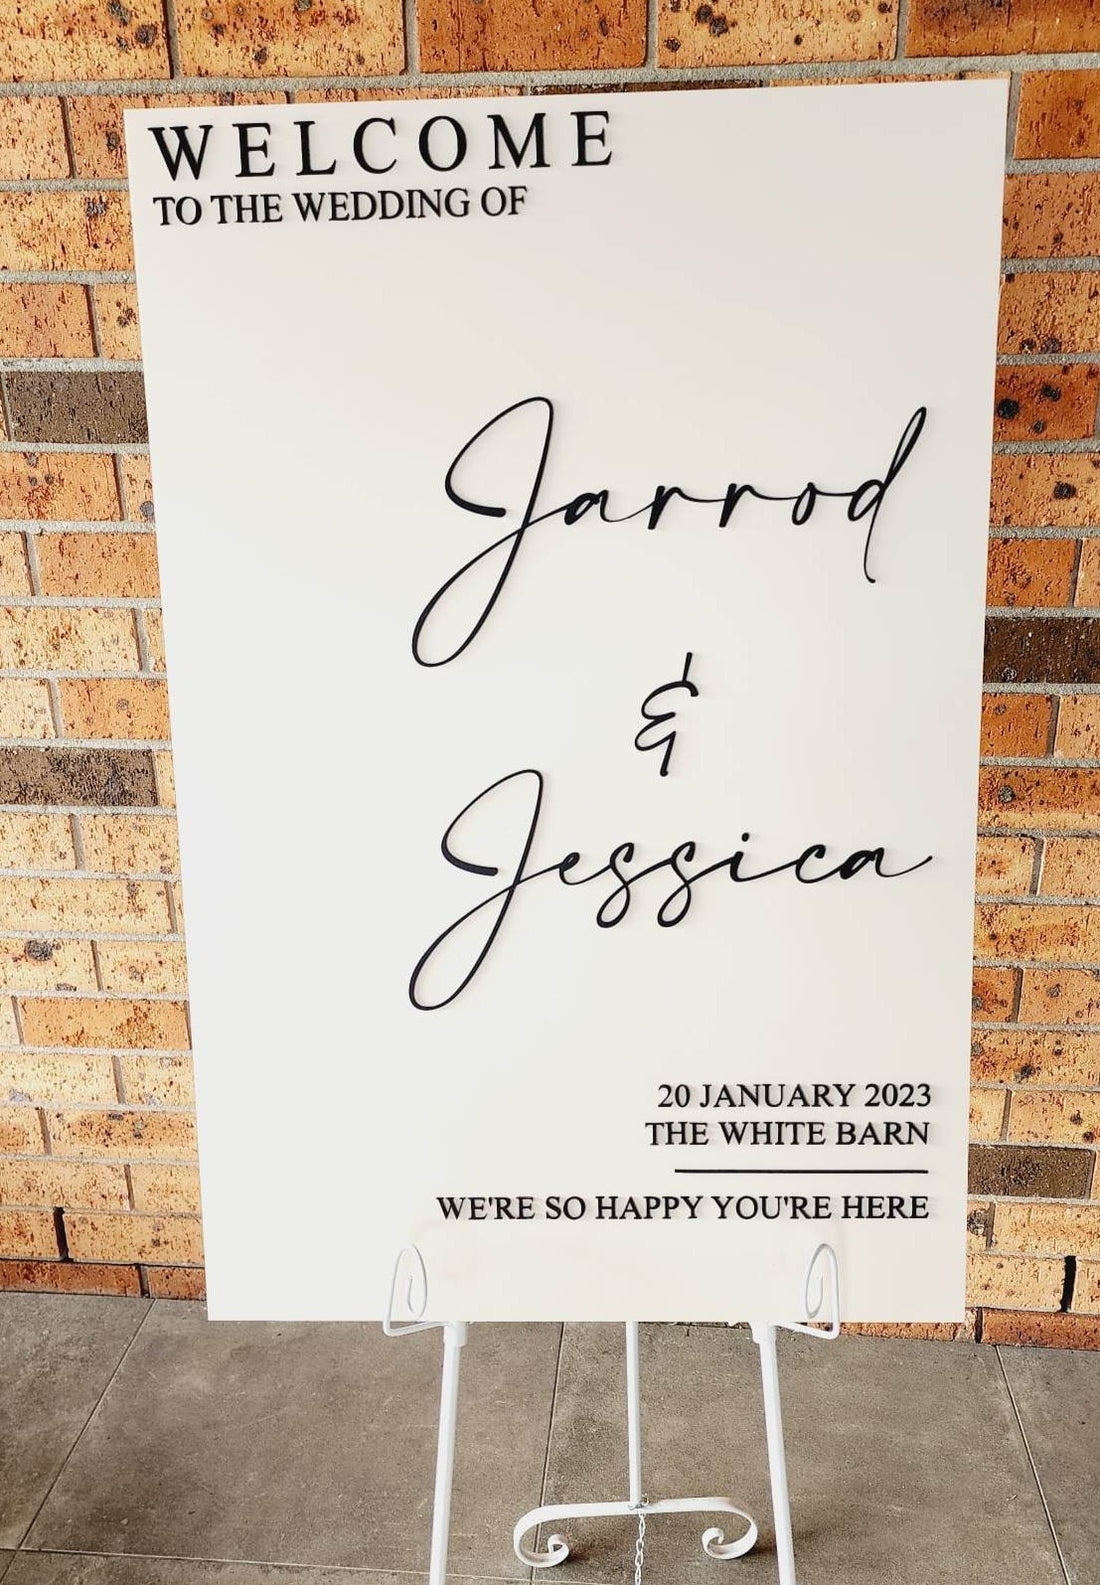 WELCOME
TO THE WEDDING OF
Jarrod
&
Jessica
20 JANUARY 2023
THE WHITE BARN
WE'RE SO HAPPY YOU'RE HERE